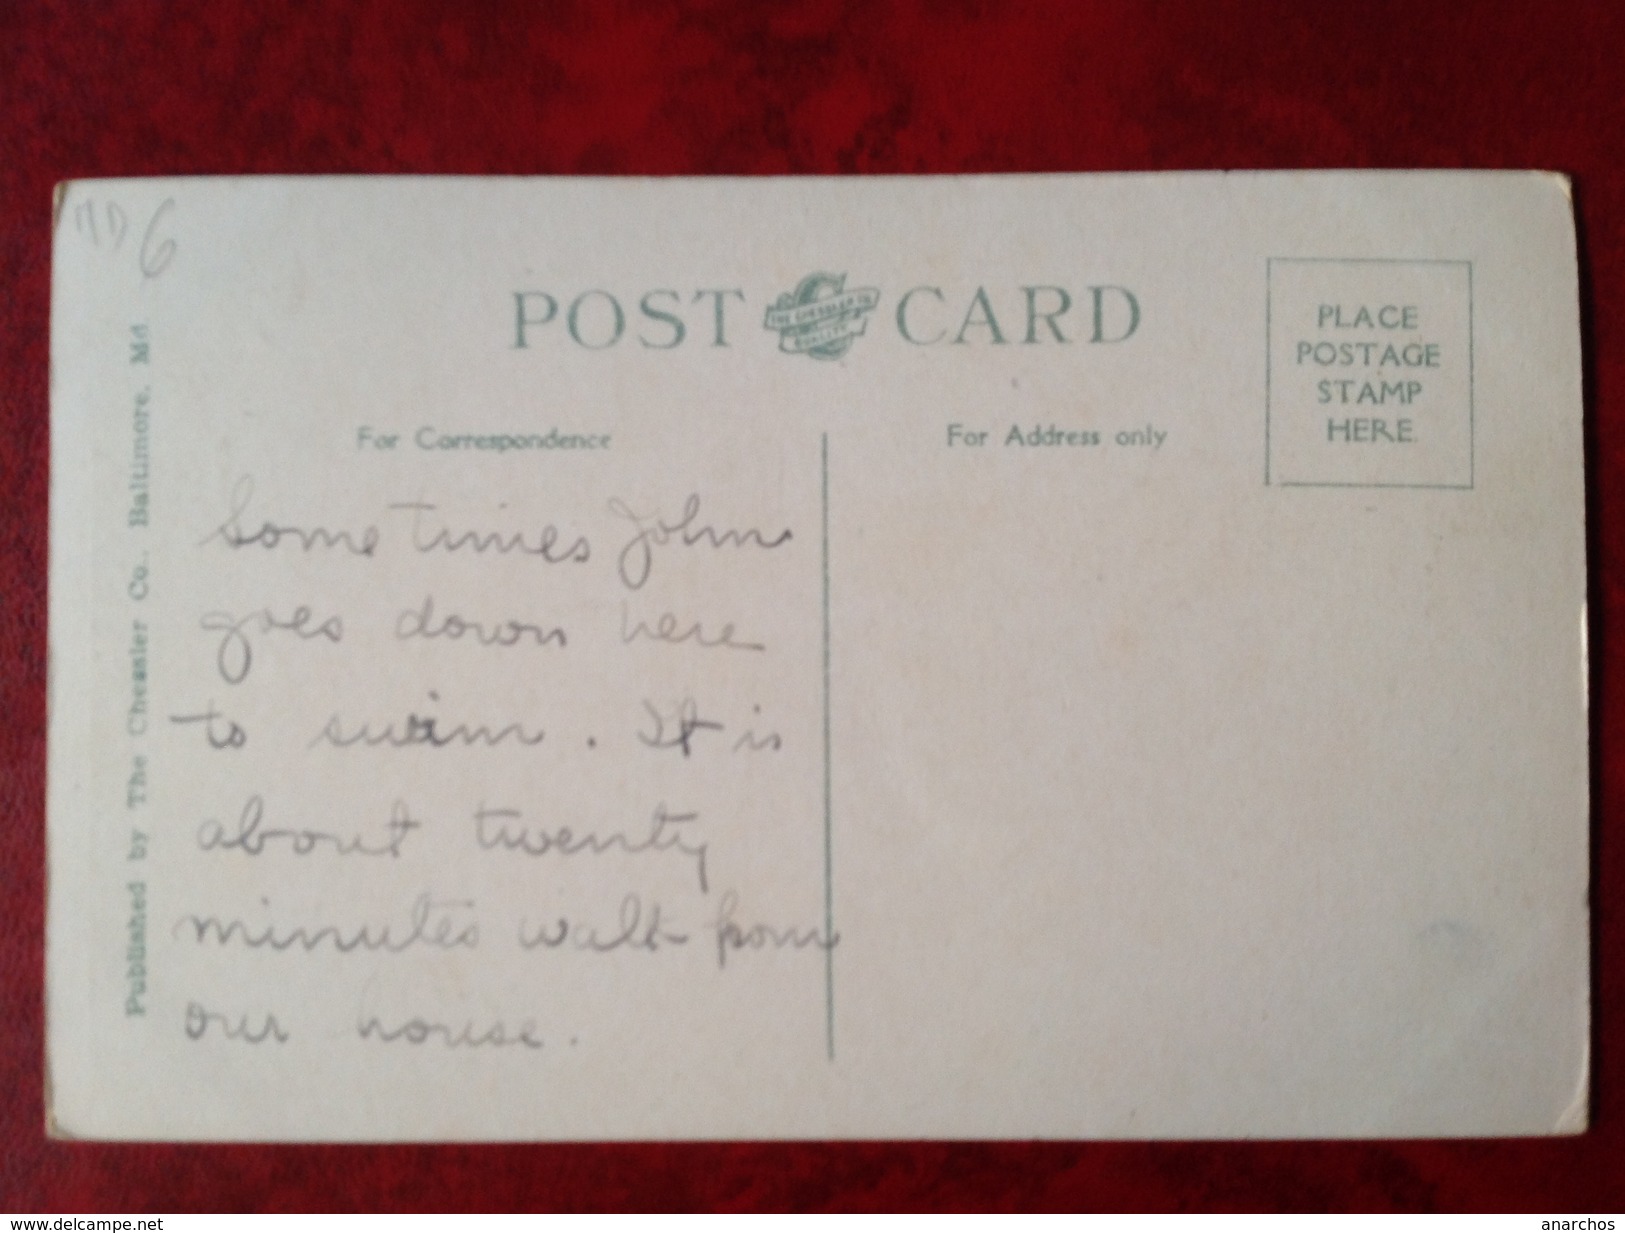 MD 6
POST CARD
THE CHESSLER CO.
QUALITY
PLACE
POSTAGE
STAMP
HERE
For Correspondence
For Address only
Published by The Chessler Co., Baltimore, Md
Some times John
goes down here
to swim. It is
about twenty
minutes walk from
our house.
www.delcampe.net
anarchos